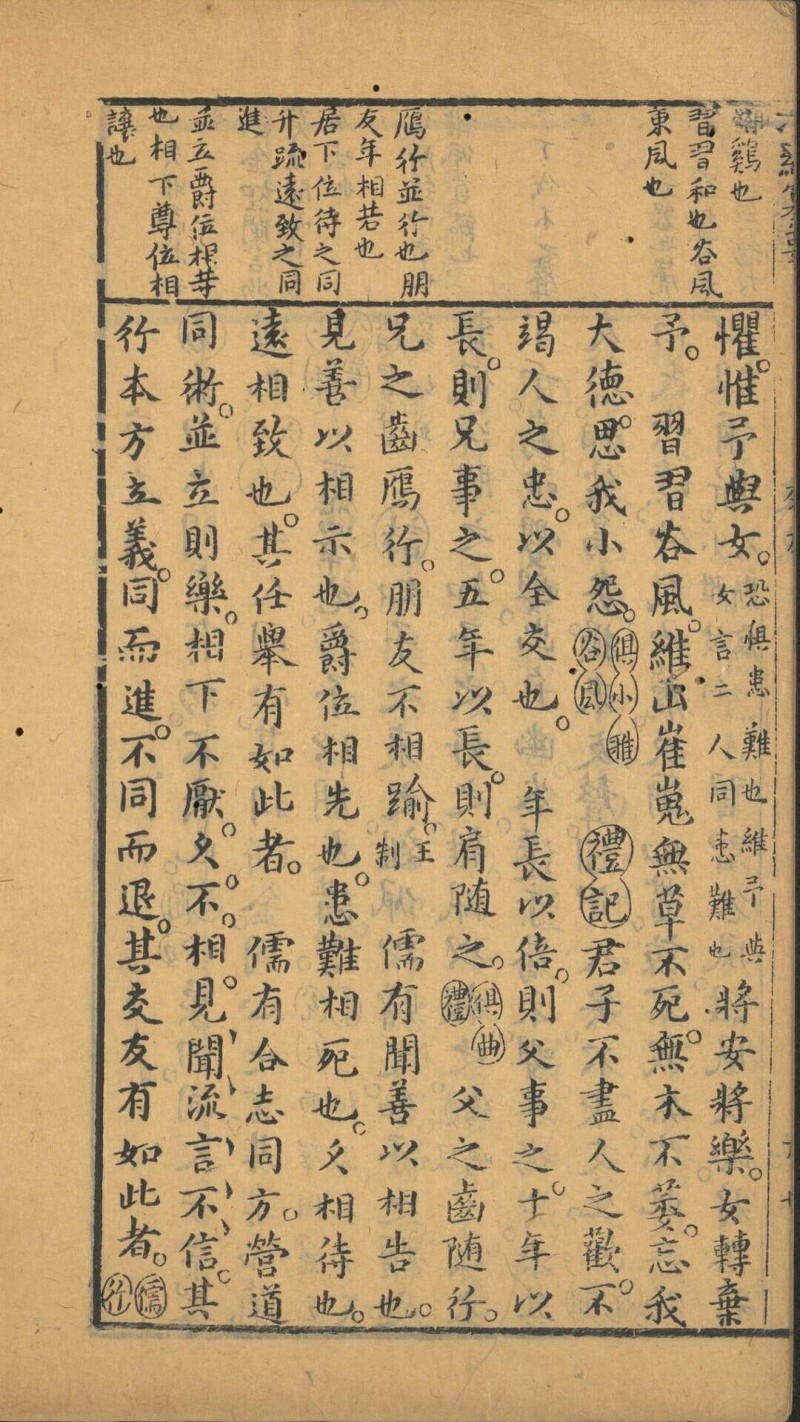 雞也
習習和也谷風
東風也
鴈行並行也朋
友年相若也
居下位待之同
升疏遠致之同
進
並立爵位相等
也相下尊位相
讓也
懼。惟予與女。恐懼患難也維予與
女言二人同患難也將安將樂。女轉棄
予。習習谷風。維山崔嵬無草不死無木不萎。忘我
大德。思我小怨。俱小雅
谷風 禮記君子不盡人之歡。不
竭人之忠。以全交也。年長以倍。則父事之。十年以
長。則兄事之。五年以長。則肩随之。俱曲
禮 父之齒随行。
兄之齒鴈行。朋友不相踰。王
制 儒有聞善以相告也。
見善以相示也。爵位相先也。患難相死也。久相待也。
遠相致也。其任舉有如此者。儒有合志同方。營道
同術。並立則樂。相下不厭。久不相見。聞流言不信。其
行本方立義。同而進。不同而退。其交友有如此者。儒
行